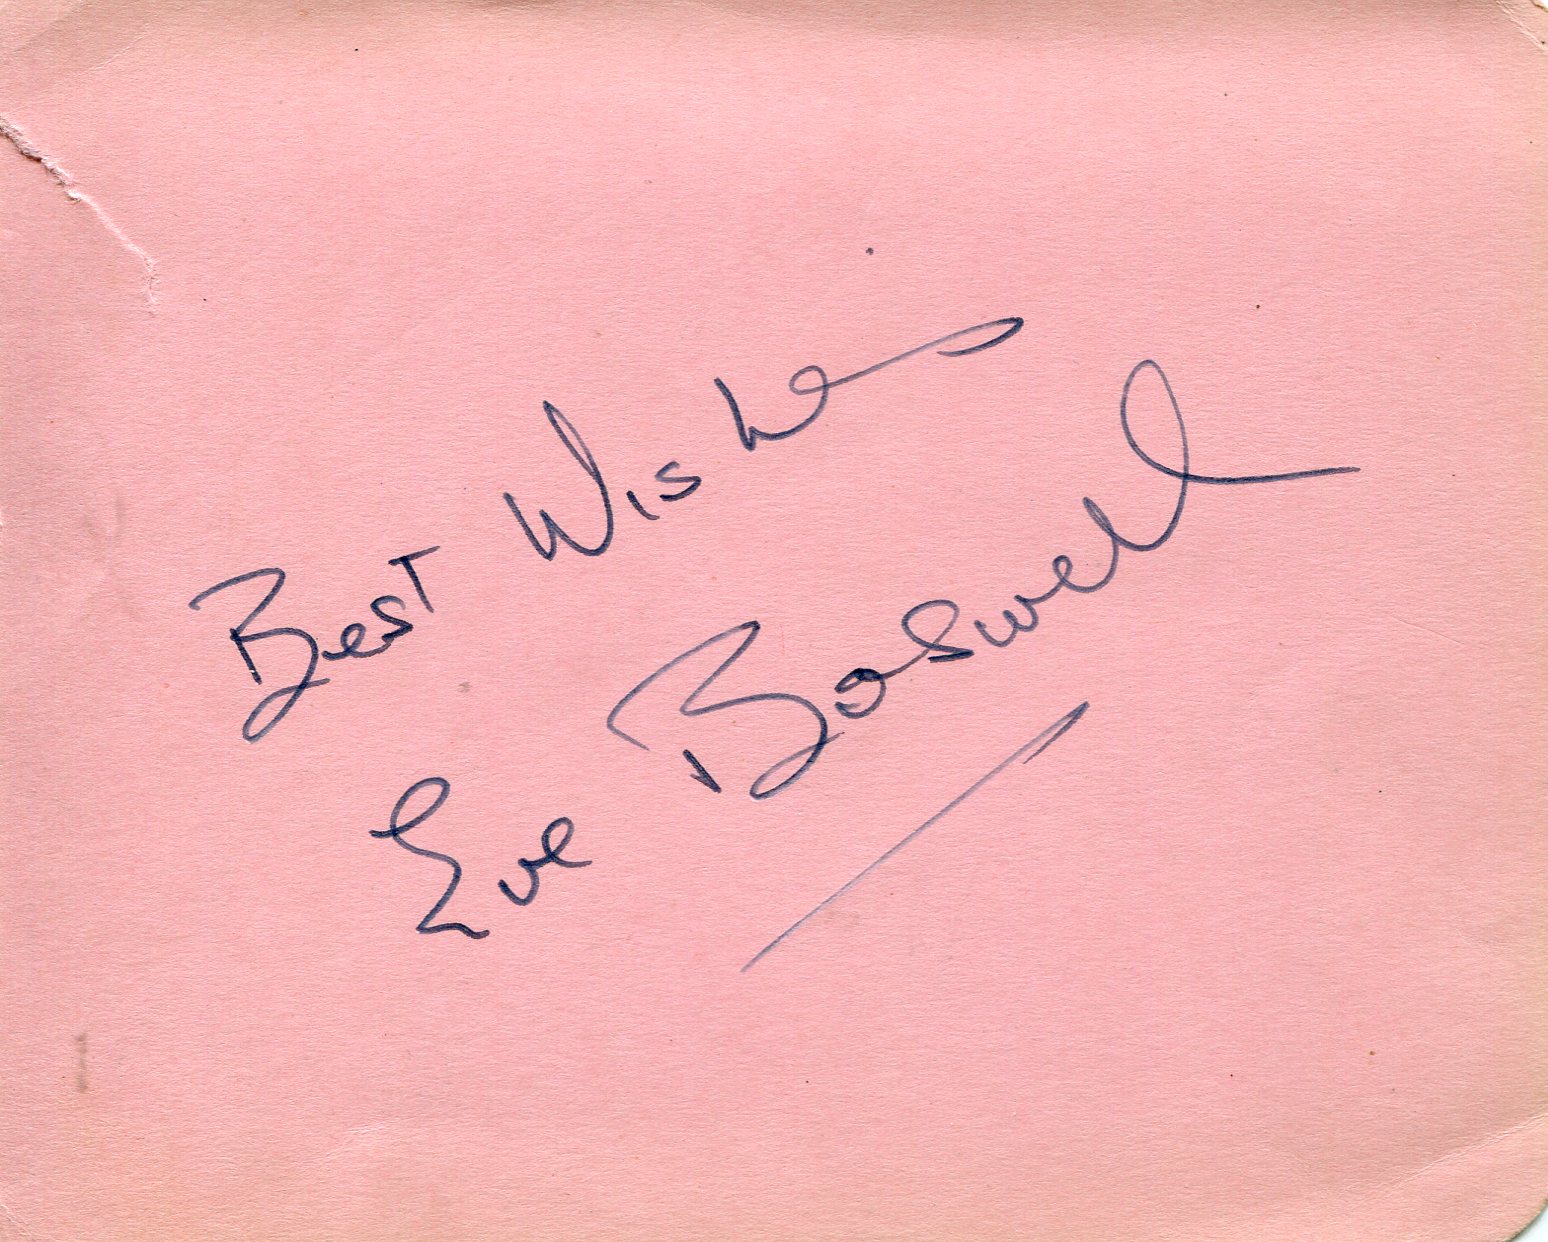 Best Wishes
Eve Boswell